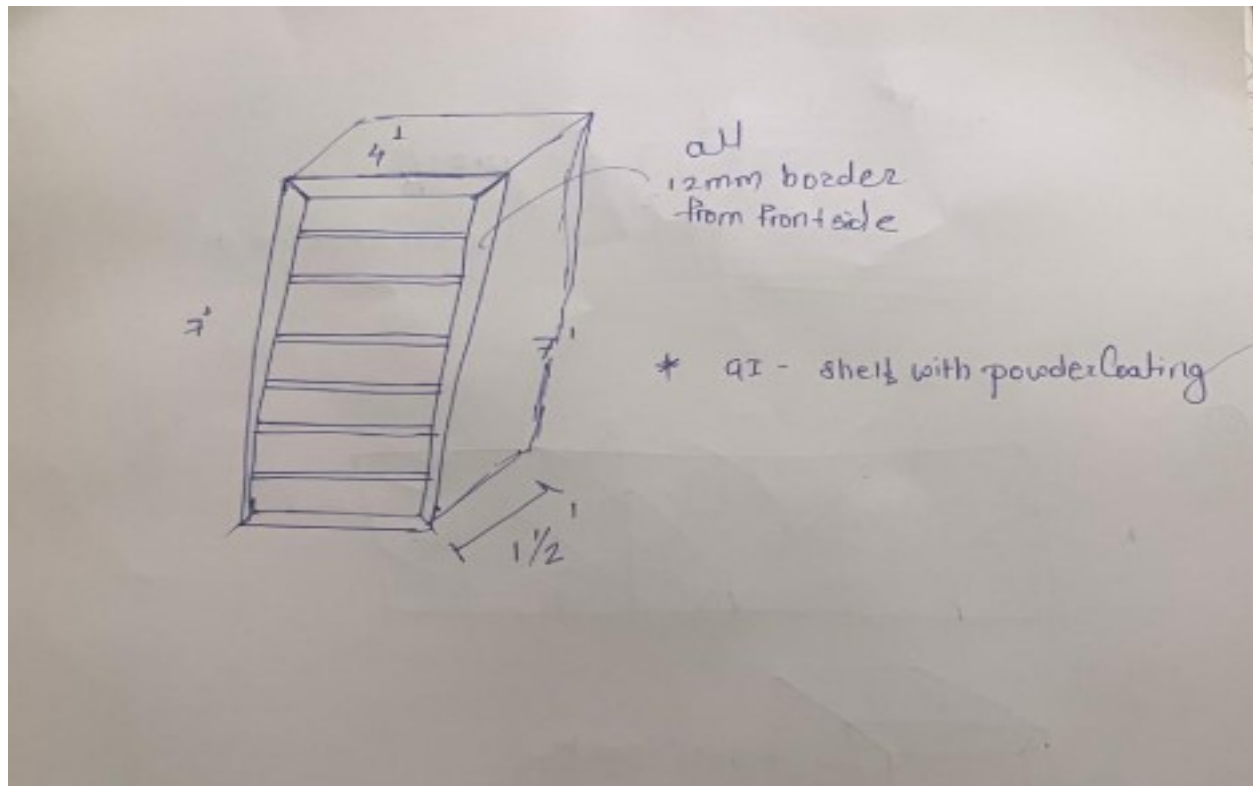 4'
all
12mm border
from frontside
7'
7'
* GI - shelf with powder Coating
1 1/2'